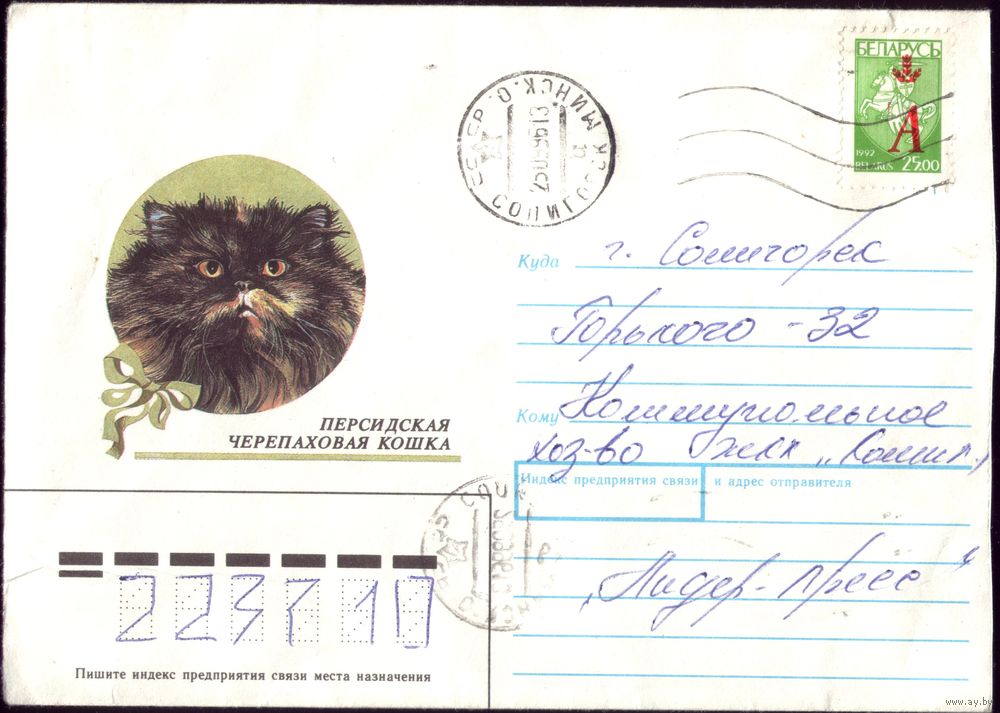 БЕЛАРУСЬ
А
1992
BELARUS 25.00
СССР МИНСК. О
СОЛИГОРСК
Куда г. Солигорск
Горького - 32
Кому Коммунальное
хоз-во жкх „Солиг.
ПЕРСИДСКАЯ
ЧЕРЕПАХОВАЯ КОШКА
Индекс предприятия связи и адрес отправителя
„Лидер-пресс“
223710
Пишите индекс предприятия связи места назначения
www.ay.by